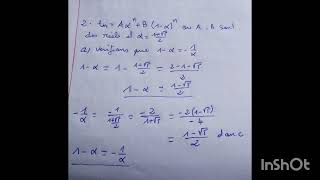 2. tn = Aα^n + B(1-α)^n où A, B sont
des réels et α = (1+√5)/2
a) vérifions que 1-α = -1/α
1-α = 1 - (1+√5)/2 = (2-1-√5)/2
1-α = (1-√5)/2
-1/α = -1/((1+√5)/2) = -2/(1+√5) = -2(1-√5)/-4
= (1-√5)/2 donc
1-α = -1/α
InShOt